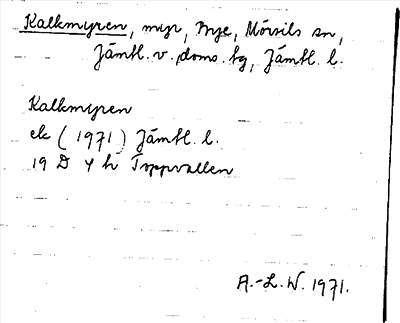 Kalkmyren, myr, Nye, Mörsils sn,
Jämtl. v. doms. tg, Jämtl. l.
Kalkmyren
ek (1971) Jämtl. l.
19 D 4 h Toppvallen
A.-L. W. 1971.